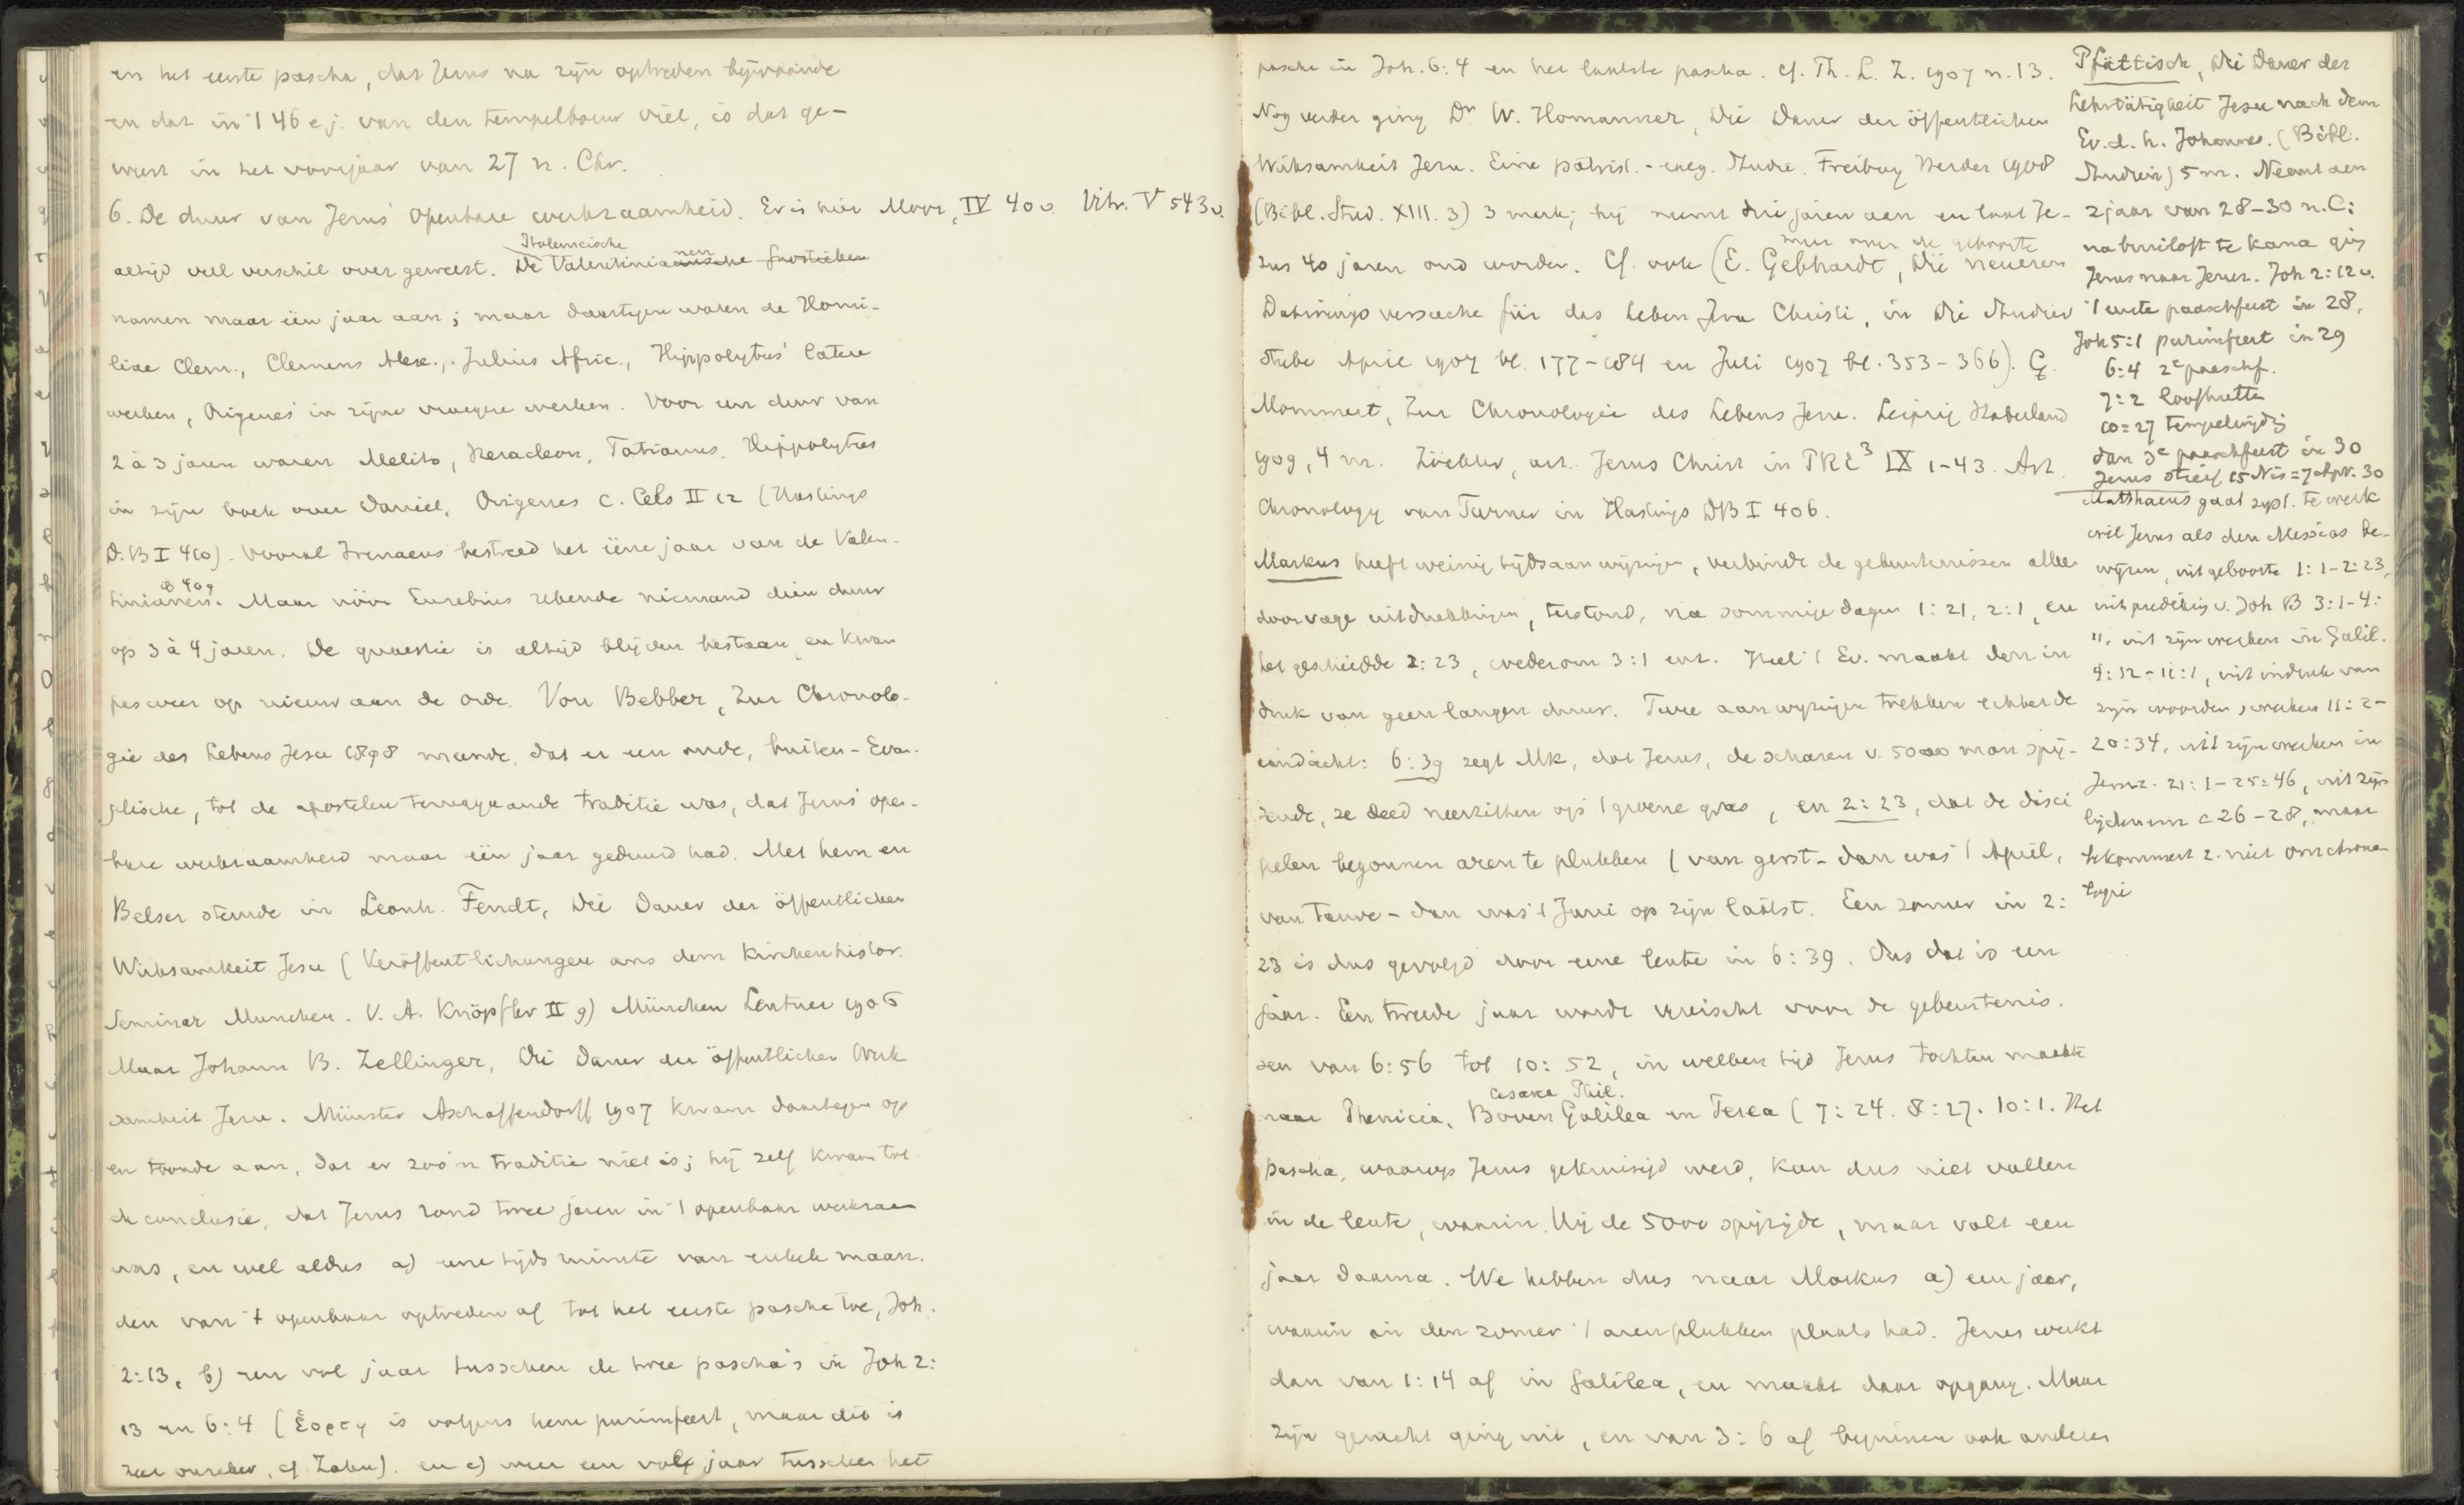 en het eerste pascha, dat Jezus na zijn optreden bijwoonde
en dat in 't 46e j. van den tempelbouw viel, is dat ge-
weest in het voorjaar van 27 n. Chr.
6. De duur van Jezus' openbare werkzaamheid. Er is hier Moor, IV 40v. Vitr. V 543v.
altijd veel verschil over geweest. De Valentinianen
Ptolemeische
namen maar één jaar aan; maar daartegen waren de Homi-
liae Clem., Clemens Alex., Julius Afric., Hippolytus' latere
werken, Origenes in zijne vroegere werken. Voor een duur van
2 à 3 jaren waren Melito, Heracleon, Tatianus, Hippolytus
in zijn boek over Daniel, Origenes c. Cels II 12 (Hastings
D.B I 410). Vooral Irenaeus bestreed het ééne jaar van de Valen-
tinianen. Maar vóór Eusebius rekende niemand dien duur
op 3 à 4 jaren. De quaestie is altijd blijven bestaan en kwam
pas weer op nieuw aan de orde. Von Bebber, Zur Chronolo-
gie des Lebens Jesu 1898 meende, dat er een oude, buiten-Evan-
gelische, tot de apostelen teruggaande traditie was, dat Jezus' open-
bare werkzaamheid maar één jaar geduurd had. Met hem en
Belser stemde in Leonh. Fendt, Die Dauer der öffentlichen
Wirksamkeit Jesu (Veröffentlichungen aus dem Kirchenhistor.
Seminar Munchen. V. A. Knöpfler II 9) München Lentner 1906
Maar Johann B. Zellinger, Die Dauer der öffentlichen Wirk
samkeit Jesu. Münster Aschaffendorff 1907 kwam daartegen op
en toonde aan, dat er zoo'n traditie niet is; hij zelf kwam tot
de conclusie, dat Jezus rond twee jaren in 't openbaar werkzaam
was, en wel aldus a) eene tijdsruimte van enkele maan-
den van 't openbaar optreden af tot het eerste pascha toe, Joh.
2:13, b) een vol jaar tusschen de twee pascha's in Joh 2:
13 en 6:4 (ἑορτη is volgens hem purimfeest, maar dit is
zeer onzeker, cf Zahn). en c) weer een vol jaar tusschen het
pascha in Joh. 6:4 en het laatste pascha. cf. Th. L. Z. 1907 n. 13.
Nog verder ging Dr W. Homanner, Die Dauer der öffentlichen
Wirksamkeit Jesu. Eine patrist.-exeg. Studie. Freiburg Herder 1908
(Bibl. Stud. XIII. 3) 3 mark; hij neemt drie jaren aan en laat Je-
zus 40 jaren oud worden. Cf. ook (E. Gebhardt, Die neueren
Datirungsversuche für das Leben Jesu Christi, in Die Studier
stube April 1907 bl. 177-184 en Juli 1907 bl. 353-366). C.
Mommert, Zur Chronologie des Lebens Jesu. Leipzig Haberland
1909, 4 m. Zöckler, art. Jesus Christ in PRE³ IX 1-43. Art.
Chronology van Turner in Hastings DB I 406.
Markus heeft weinig tijdsaanwijzingen, verbindt de gebeurtenissen alleen
door vage uitdrukkingen, terstond, na sommige dagen 1:21, 2:1, en
het geschiedde 2:23, wederom 3:1 enz. Heel 't Ev. maakt den in
druk van geen langen duur. Twee aanwijzingen trekken echter de
aandacht: 6:39 zegt Mk, dat Jezus, de scharen v. 5000 man spij-
zende, ze deed neerzitten op 't groene gras, en 2:23, dat de disci
pelen begonnen aren te plukken (van gerst - dan was 't April,
van tarwe - dan was 't Juni op zijn laatst. Een zomer in 2:
23 is dus gevolgd door eene lente in 6:39. Dus dat is een
jaar. Een tweede jaar wordt vereischt voor de gebeurtenis-
sen van 6:56 tot 10:52, in welken tijd Jezus tochten maakte
Cesarea Phil.
naar Phenicia, Boven Galilea en Perea (7:24. 8:27. 10:1. Het
pascha, waarop Jezus gekruisigd werd, kan dus niet vallen
in de lente, waarin Hij de 5000 spijzigde, maar valt een
jaar daarna. We hebben dus naar Markus a) een jaar,
waarin in den zomer 't arenplukken plaats had. Jezus werkt
dan van 1:14 af in Galilea, en maakt daar opgang. Maar
zijn gerucht ging uit, en van 3:6 af beginnen ook anderen
Pfättisch, Die Dauer der
Lehrtätigkeit Jesu nach dem
Ev. d. h. Johannes. (Bibl.
Studien) 5 m. Neemt aan
2 jaar van 28-30 n.C:
na bruiloft te Kana ging
Jezus naar Jeruz. Joh 2:12v.
't eerste paaschfeest in 28,
Joh 5:1 purimfeest in 29
6:4 2e paaschf.
7:2 loofhutten
10:27 tempelwijding
dan 3e paaschfeest in 30
Jezus stierf 15 Nis = 7 Apr. 30
Matthaeus gaat syst. te werk
wil Jezus als den Messias be-
wijzen, uit geboorte 1:1-2:23,
uit prediking v. Joh B 3:1-4:
11, uit zijn werken in Galil.
4:12-11:1, uit indruk van
zijn woorden, werken 11:2-
20:34, uit zijn werken in
Jeruz. 21:1-25:46, uit zijn
lijden enz c 26-28, maar
bekommert z. niet om chrono-
logie